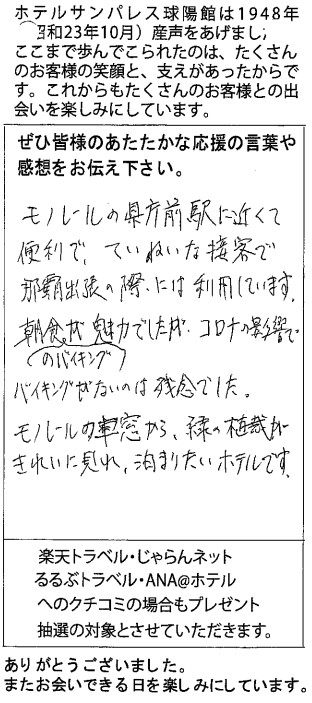 ホテルサンパレス球陽館は1948年
(昭和23年10月）産声をあげまし
ここまで歩んでこられたのは、たくさん
のお客様の笑顔と、支えがあったからで
す。これからもたくさんのお客様との出
会いを楽しみにしています。
ぜひ皆様のあたたかな応援の言葉や
感想をお伝え下さい。
モノレールの県庁前駅に近くて
便利で、ていねいな接客で
那覇出張の際には利用しています。
朝食が魅力でしたが、コロナの影響で
(のバイキング)
バイキングがないのは残念でした。
モノレールの車窓から、緑の植栽が
きれいに見れ、泊まりたいホテルです。
楽天トラベル・じゃらんネット
るるぶトラベル・ANA@ホテル
へのクチコミの場合もプレゼント
抽選の対象とさせていただきます。
ありがとうございました。
またお会いできる日を楽しみにしています。